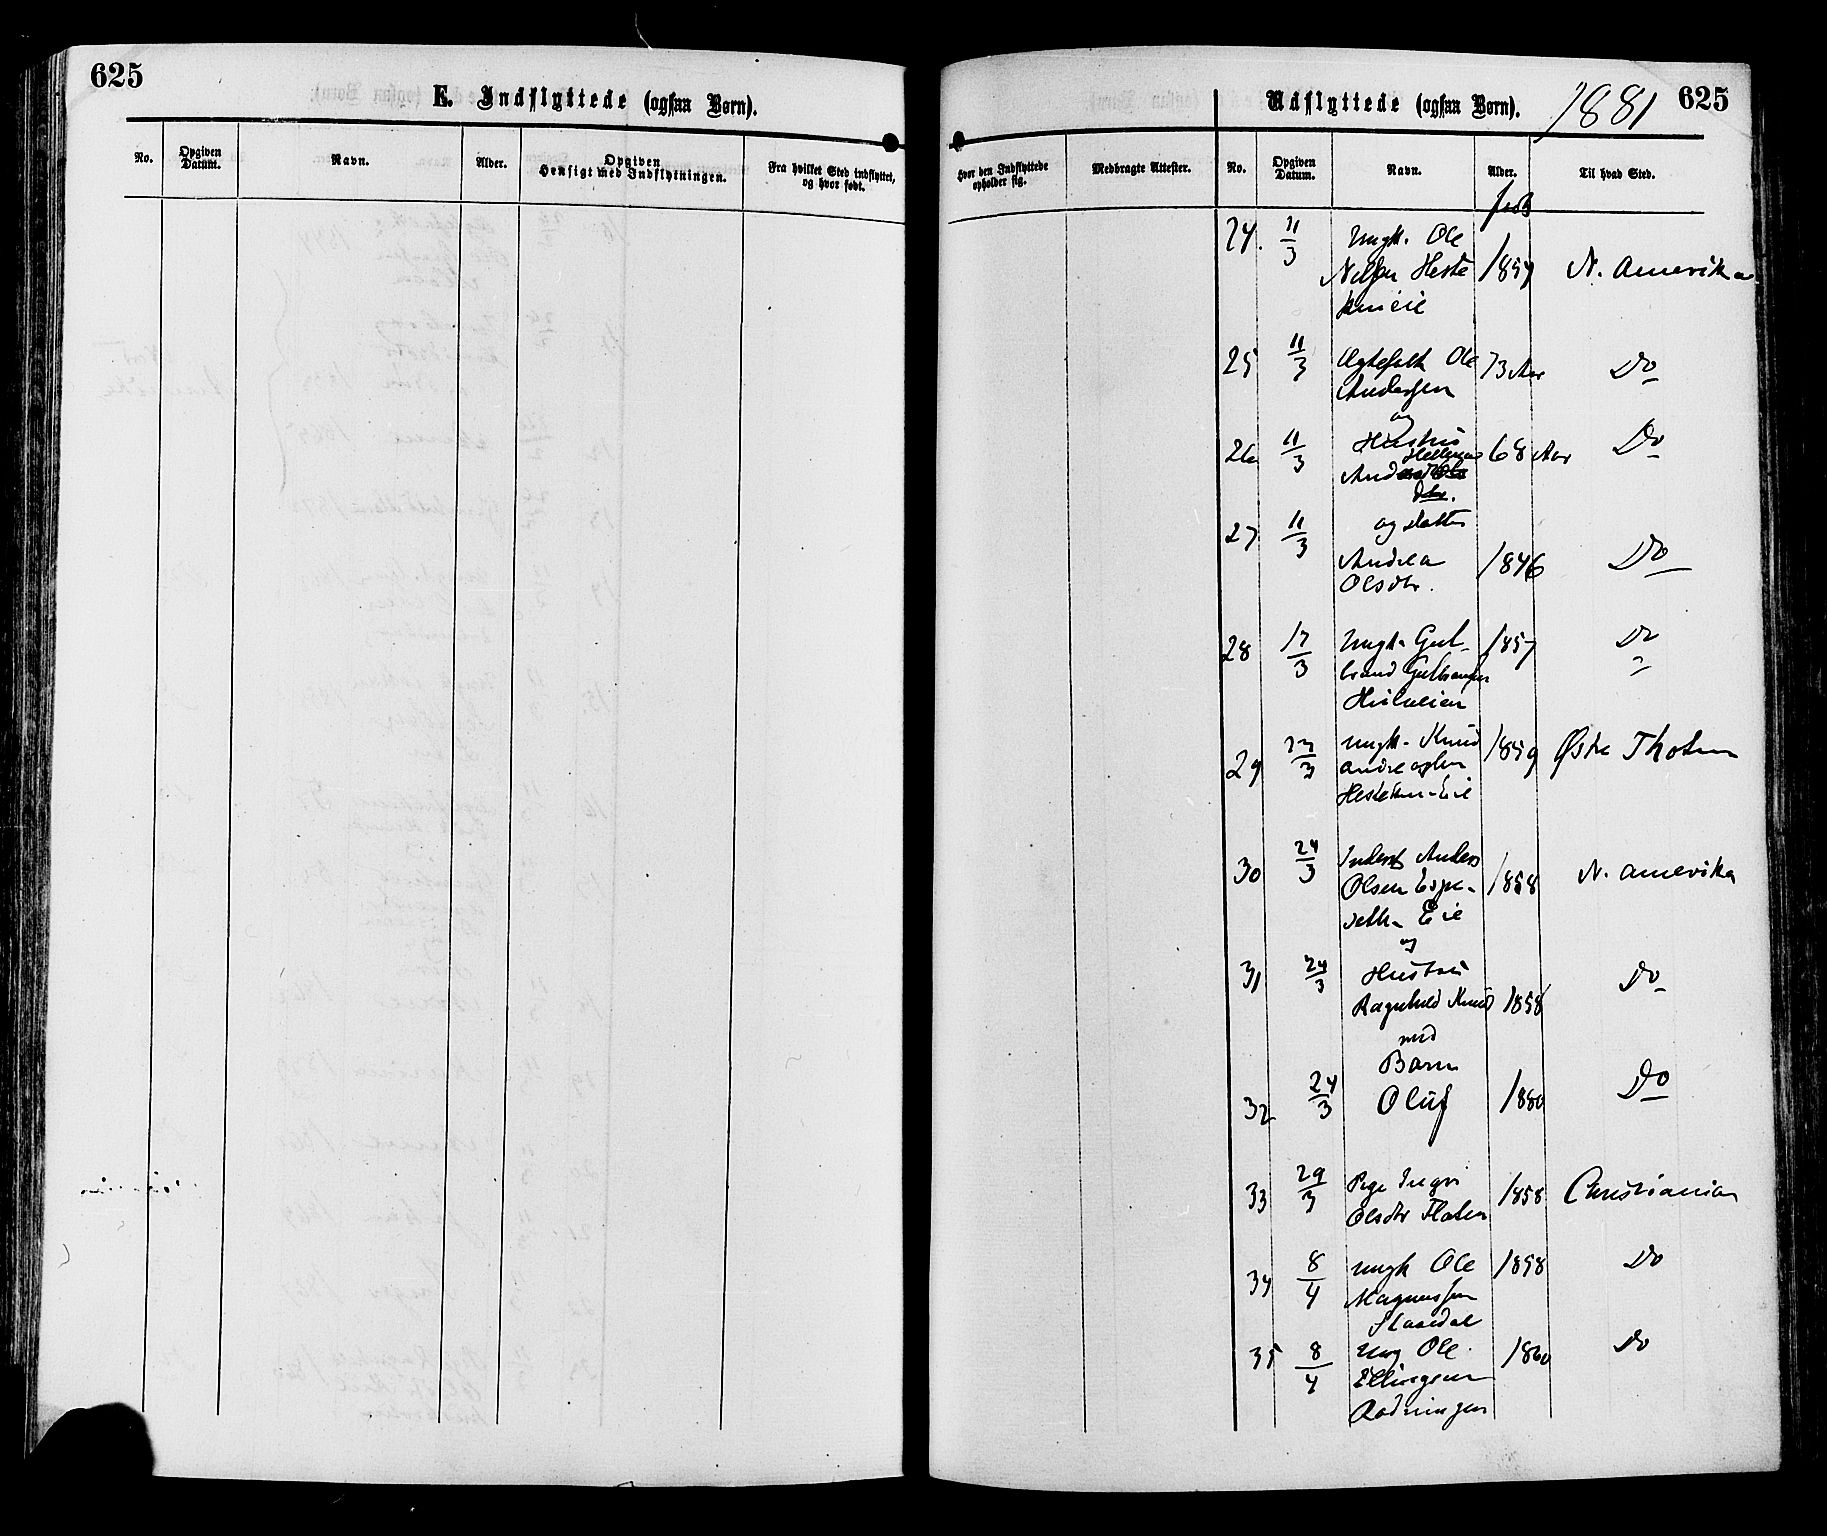 625
E. Indflyttede (ogsaa Børn).
No.
Opgiven Datum.
Navn.
Alder.
Opgiven Hensigt med Indflytningen.
Fra hvilket Sted indflyttet, og hvor født.
Hvor den Indflyttede opholder sig.
Medbragte Attester.
Udflyttede (ogsaa Børn).
1881
625
No.
Opgiven Datum.
Navn.
Alder.
Til hvad Sted.
født
24. 11/3 Ungk. Ole
Nelsen Heste 1857 N. Amerika
kneie
25 11/3 Ægtefolk Ole 73 Aar Do
Andersen
og
26 11/3 Hustru 68 Aar Do
27 11/3 og datter
Andrea 1846 Do
Olsdtr.
28 17/3 Ungk. Gul- 1857 Do
brand Gulbransen
29 23/3 Ungk. Knud 1859 Østre Thoten
Andreassen
Hestekn-Eie
30 24/3 Inderst Anders
Olsen Espe- 1858 N. Amerika
seth. Eie
og
31 24/3 Hustru Do
Ragnhild Knud 1858
med
Barn
32 24/3 Oluf 1880 Do
33 29/3 Pige Ingri 1858 Christiania
Olsdtr Flaten
34 8/4 Ungk Ole 1858 Do
Magnussen
35 8/4 Ung Ole 1860 Do
Ellingsen
Rødningen